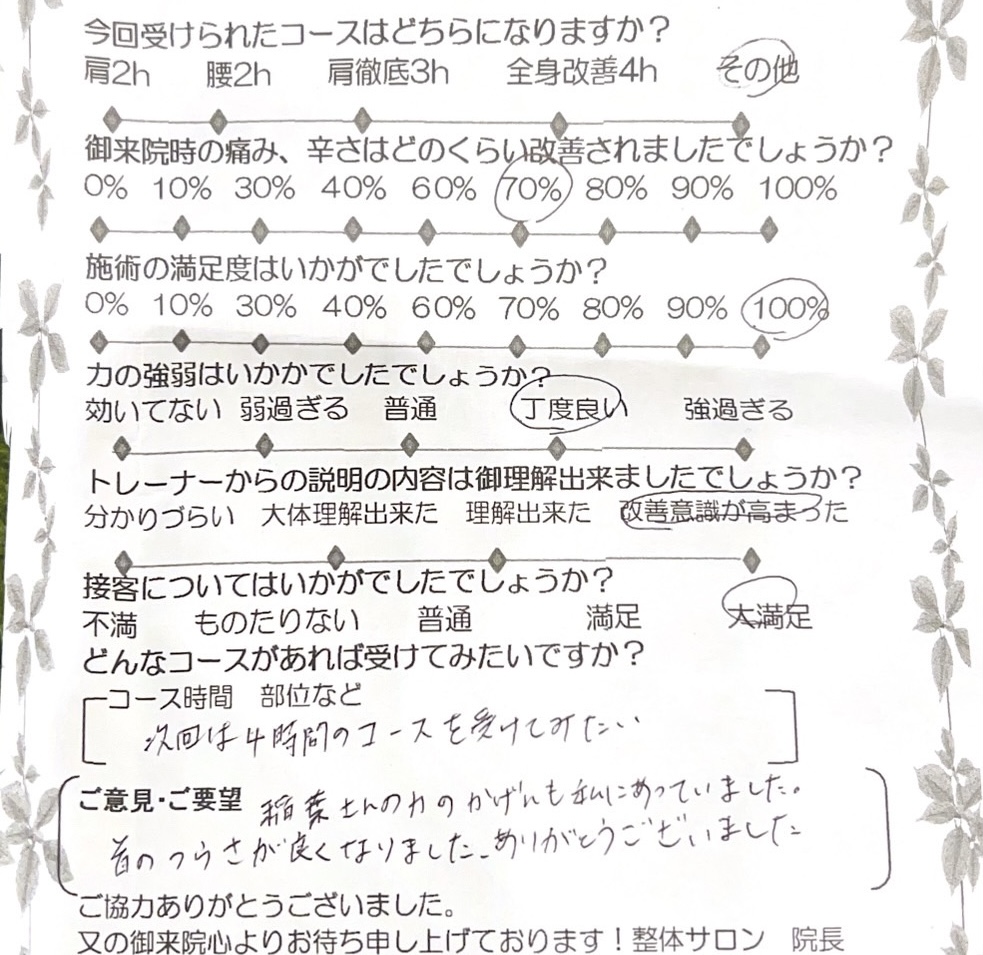 今回受けられたコースはどちらになりますか？
肩2h 腰2h 肩徹底3h 全身改善4h その他
御来院時の痛み、辛さはどのくらい改善されましたでしょうか？
0% 10% 30% 40% 60% 70% 80% 90% 100%
施術の満足度はいかがでしたでしょうか？
0% 10% 30% 40% 60% 70% 80% 90% 100%
力の強弱はいかかでしたでしょうか？
効いてない 弱過ぎる 普通 丁度良い 強過ぎる
トレーナーからの説明の内容は御理解出来ましたでしょうか？
分かりづらい 大体理解出来た 理解出来た 改善意識が高まった
接客についてはいかがでしたでしょうか？
不満 ものたりない 普通 満足 大満足
どんなコースがあれば受けてみたいですか？
コース時間 部位など
次回は4時間のコースを受けてみたい
ご意見・ご要望 稲葉さんの力のかげんも私にあっていました。
首のつらさが良くなりました。ありがとうございました
ご協力ありがとうございました。
又の御来院心よりお待ち申し上げております！整体サロン 院長